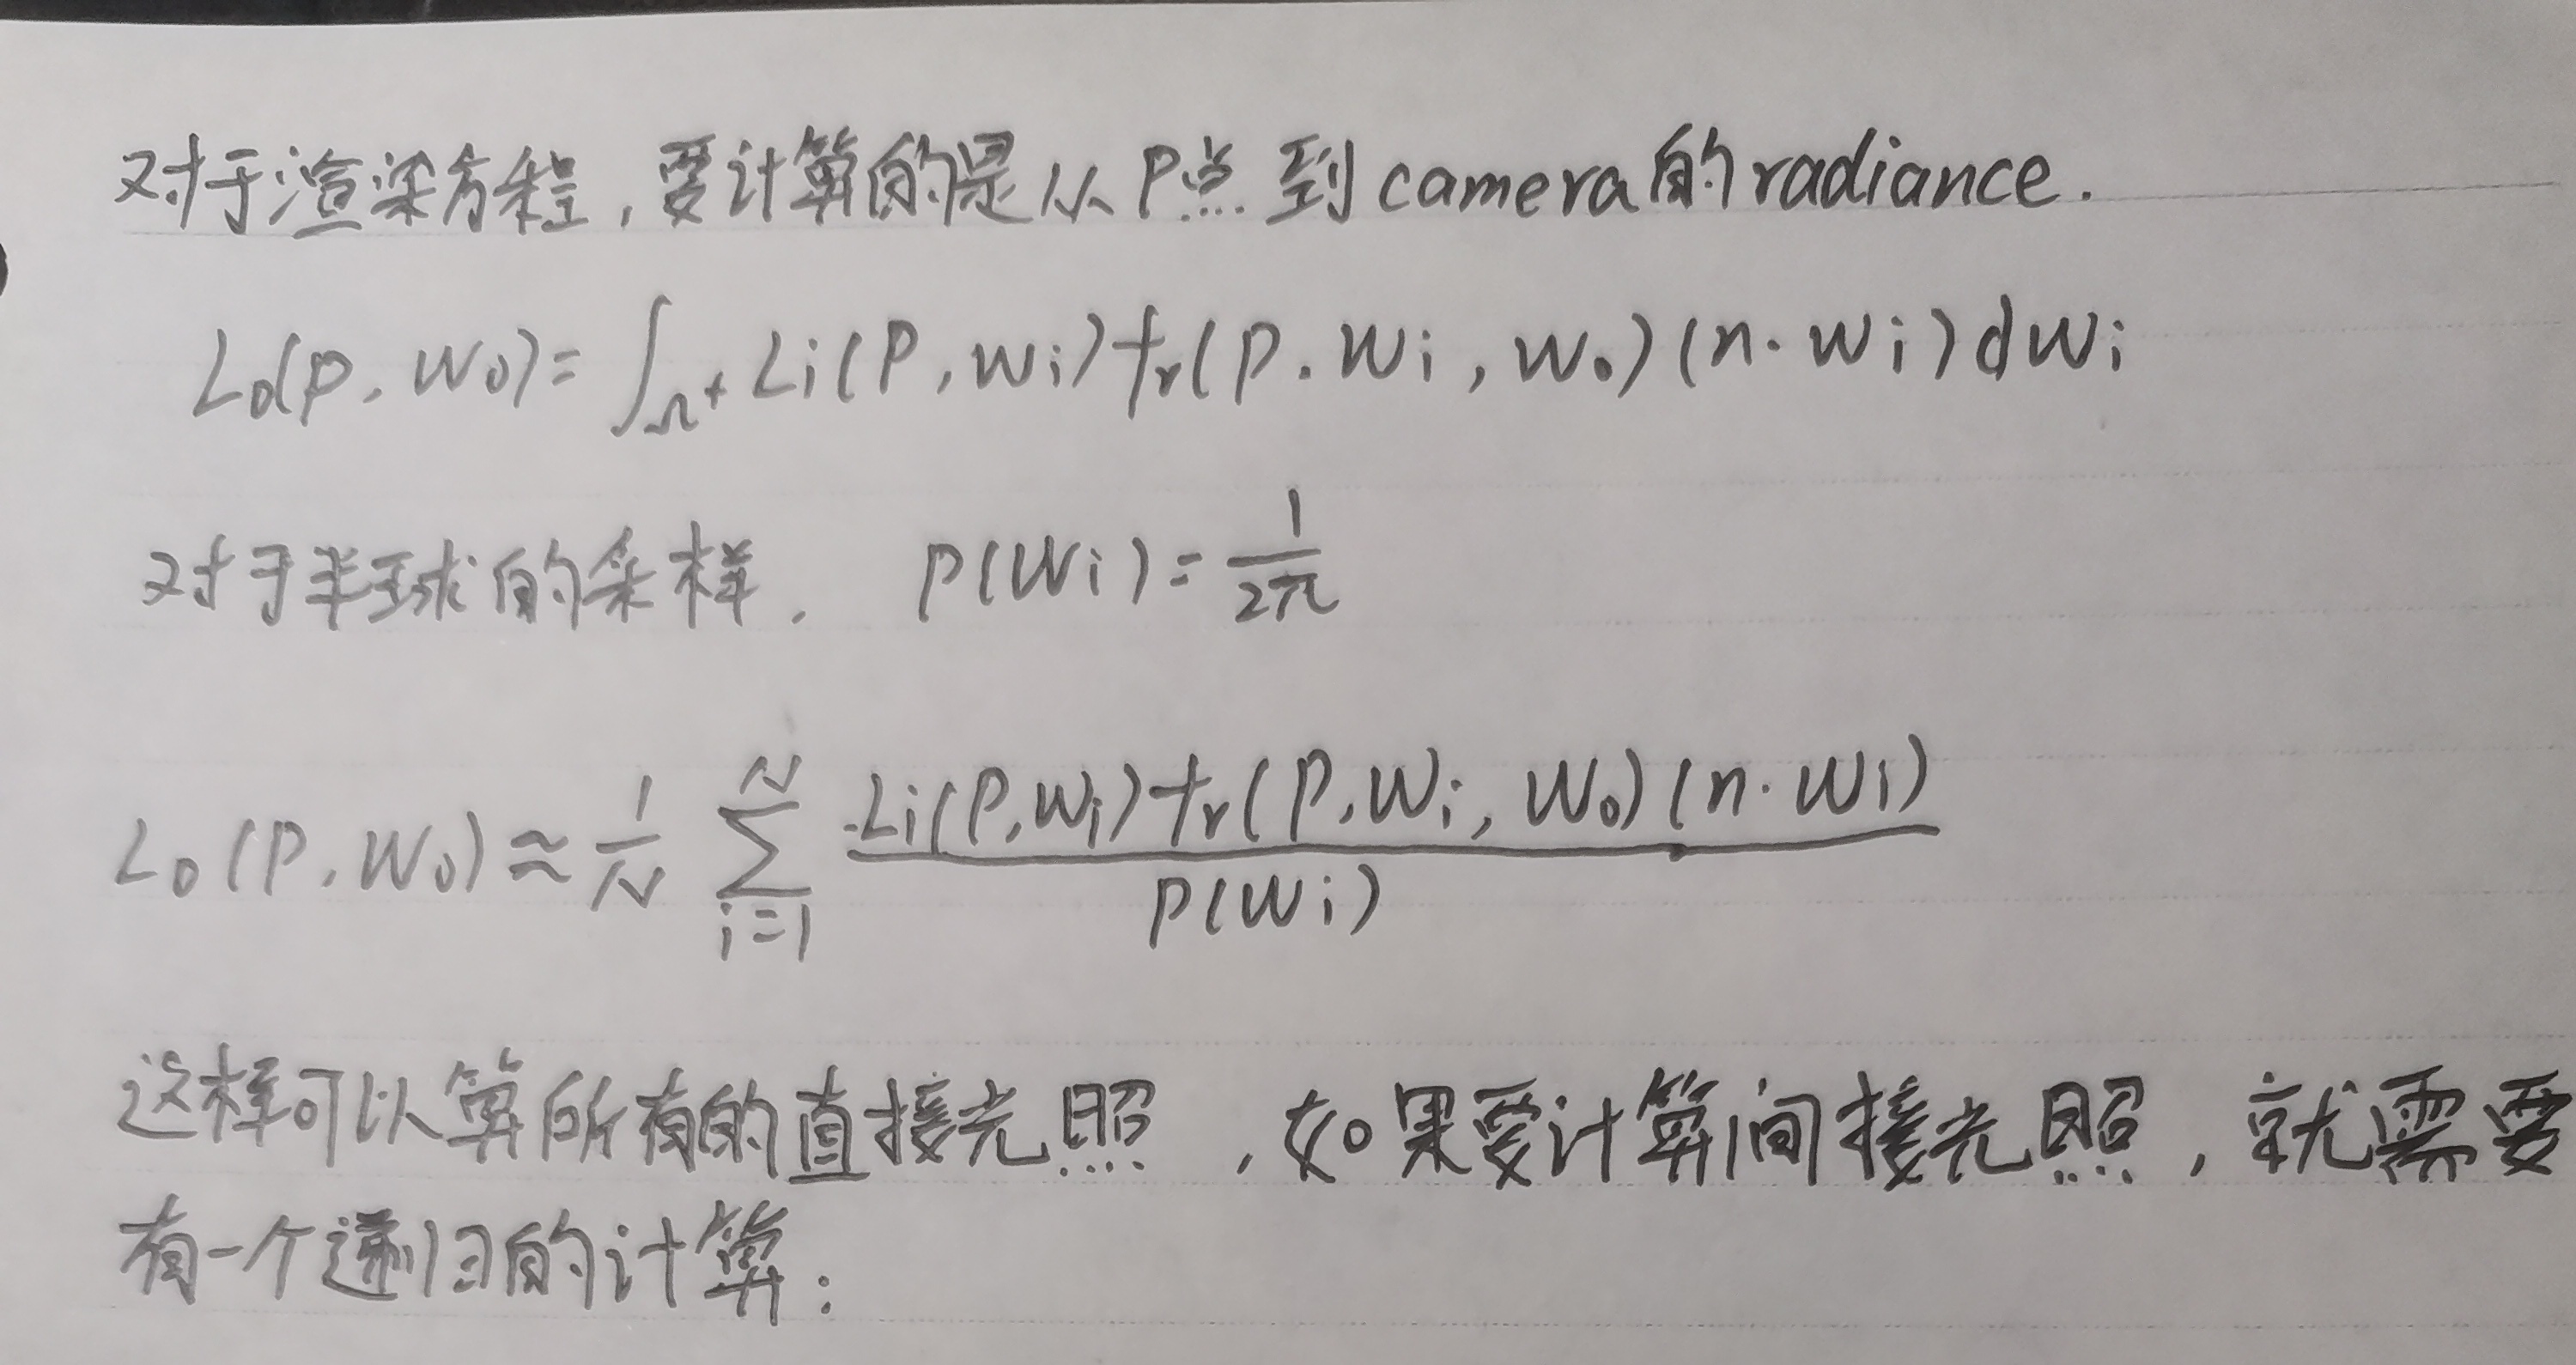 对于渲染方程,要计算的是从P点到camera的radiance.
Lo(p, wo) = ∫Ω+ Li(P, wi) fr(p, wi, wo)(n·wi)dwi
对于半球的采样, p(wi) = 1/2π
Lo(P, wo) ≈ 1/N ∑_{i=1}^{N} Li(P, wi) fr(P, wi, wo)(n·wi) / p(wi)
这样可以算所有的直接光照,如果要计算间接光照,就需要
有一个递归的计算: